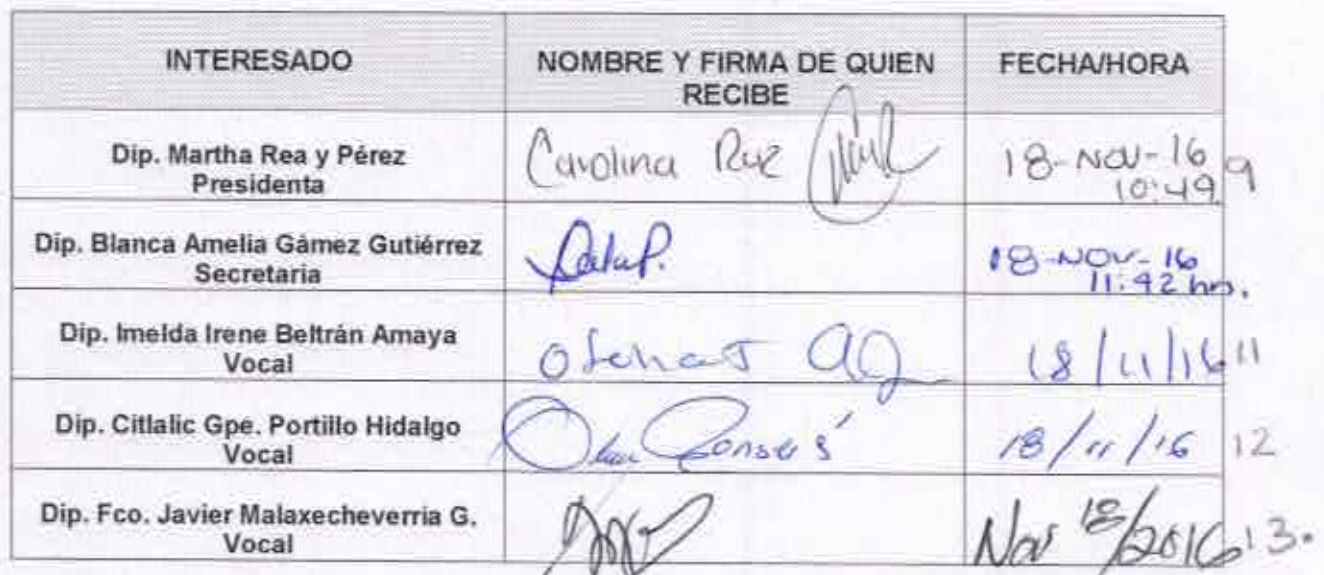 INTERESADO
NOMBRE Y FIRMA DE QUIEN
RECIBE
FECHA/HORA
Dip. Martha Rea y Pérez
Presidenta
Carolina Ruz
18-NOV-16
10:49 9
Dip. Blanca Amelia Gámez Gutiérrez
Secretaria
18-NOV-16
11:42 hrs.
Dip. Imelda Irene Beltrán Amaya
Vocal
18/11/16 11
Dip. Citlalic Gpe. Portillo Hidalgo
Vocal
18/11/16 12
Dip. Fco. Javier Malaxecheverria G.
Vocal
Nov 18/2016 13.